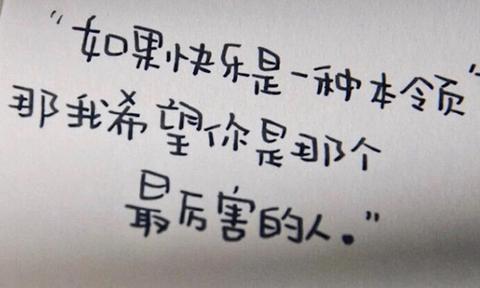 “如果快乐是一种本领”
那我希望你是那个
最厉害的人。”